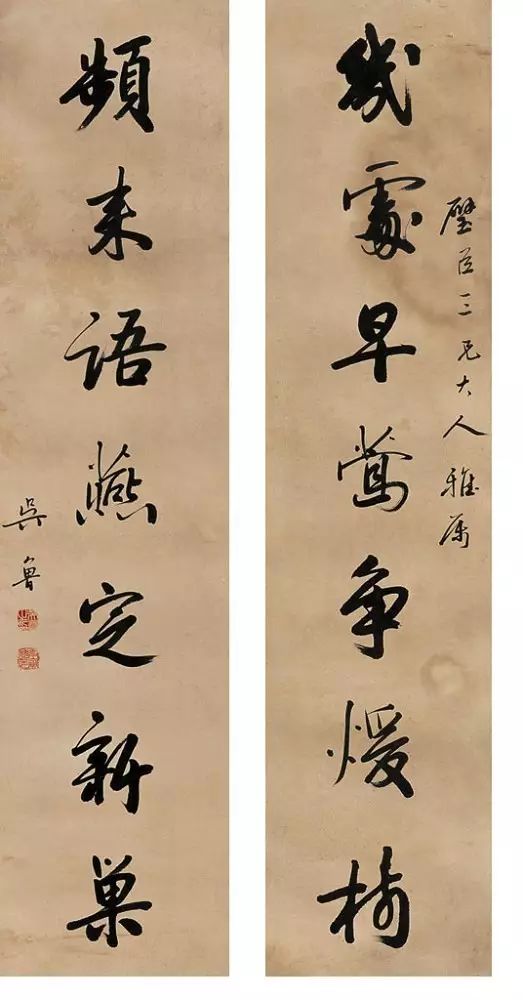 璧臣三兄大人雅屬
幾處早鶯爭煖樹
頻來語燕定新巢
吳魯